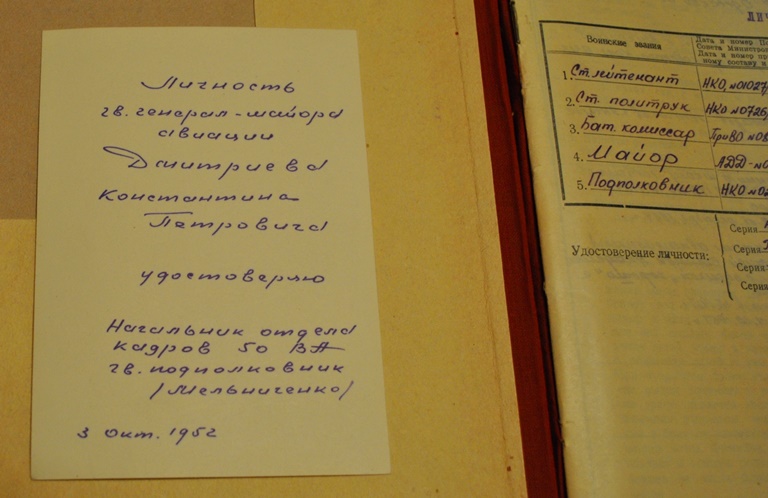 Личность
гв. генерал-майора
авиации
Дмитриева
Константина
Петровича
удостоверяю
Начальник отдела
кадров 50 ВА
гв. подполковник
/Мельниченко/
3 окт. 1952
Воинские звания
Дата и номер
Совета Министров
Дата и номер
ному составу
1. Ст. лейтенант НКО, №01027
2. Ст. политрук НКО №0726
3. Бат. комиссар ПриВО №08
4. Майор АДД-№0
5. Подполковник НКО №02
Серия
Удостоверение личности: Серия
Серия
Серия